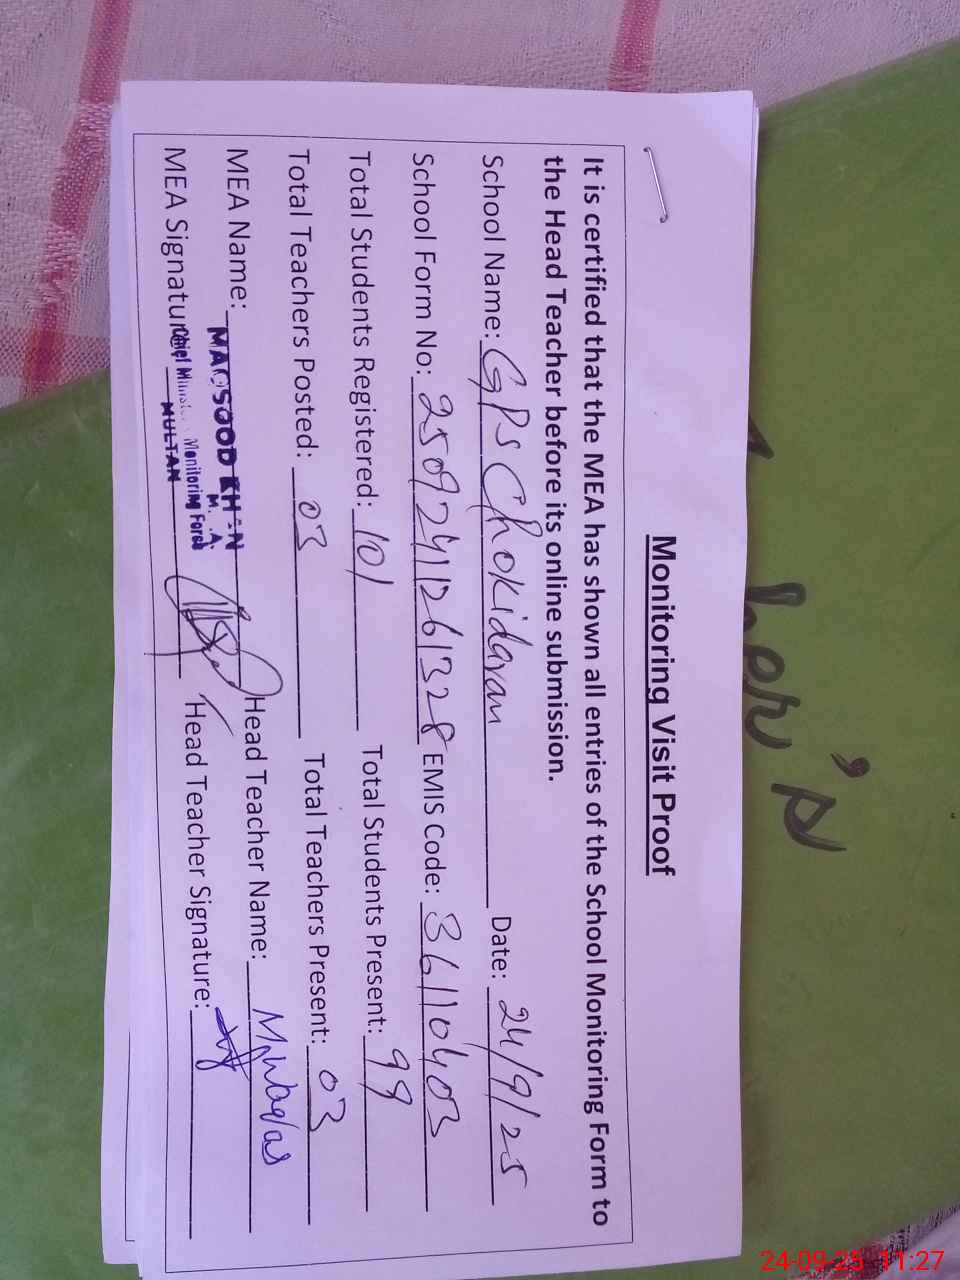 Monitoring Visit Proof
It is certified that the MEA has shown all entries of the School Monitoring Form to
the Head Teacher before its online submission.
School Name: GPS Chokidaran Date: 24/9/25
School Form No: 25092411261328 EMIS Code: 36110403
Total Students Registered: 101 Total Students Present: 99
Total Teachers Posted: 03 Total Teachers Present: 03
MEA Name: MAQSOOD KHAN Head Teacher Name:
M. A.
MEA Signature: Head Teacher Signature:
Chief Minister Monitoring Force
MULTAN
her's
24-09-25 11:27